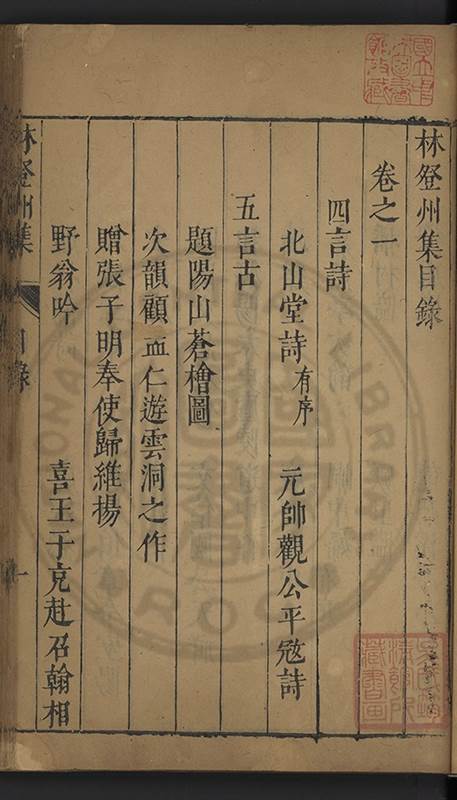 林登州集目錄
卷之一
四言詩
北山堂詩有序　元帥觀公平㓂詩
五言古
題陽山蒼檜圖
次韻顧孟仁遊雲洞之作
贈張子明奉使歸維揚
野翁吟　喜王子克赴召翰相
林登州集　目錄　一